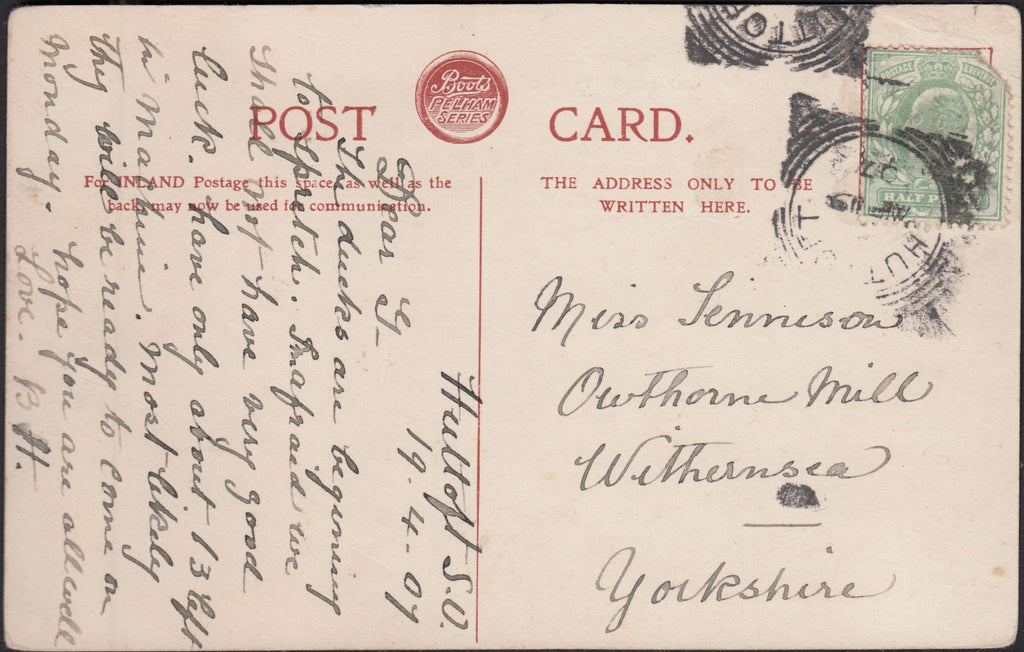 POST
Boots
PELHAM
SERIES
CARD.
For INLAND Postage this space, as well as the
back, may now be used for communication.
THE ADDRESS ONLY TO BE
WRITTEN HERE.
HALF P
HUT
Huttoft S.O.
19-4-07
Dear G
The ducks are beginning
to spretch. I'm afraid we
shall not have very good
luck. have only about 13 left
in Machine. most likely
they will be ready to come on
Monday. hope you are all well
Love. B H.
Miss Tennison
Owthorne Mill
Withernsea
Yorkshire